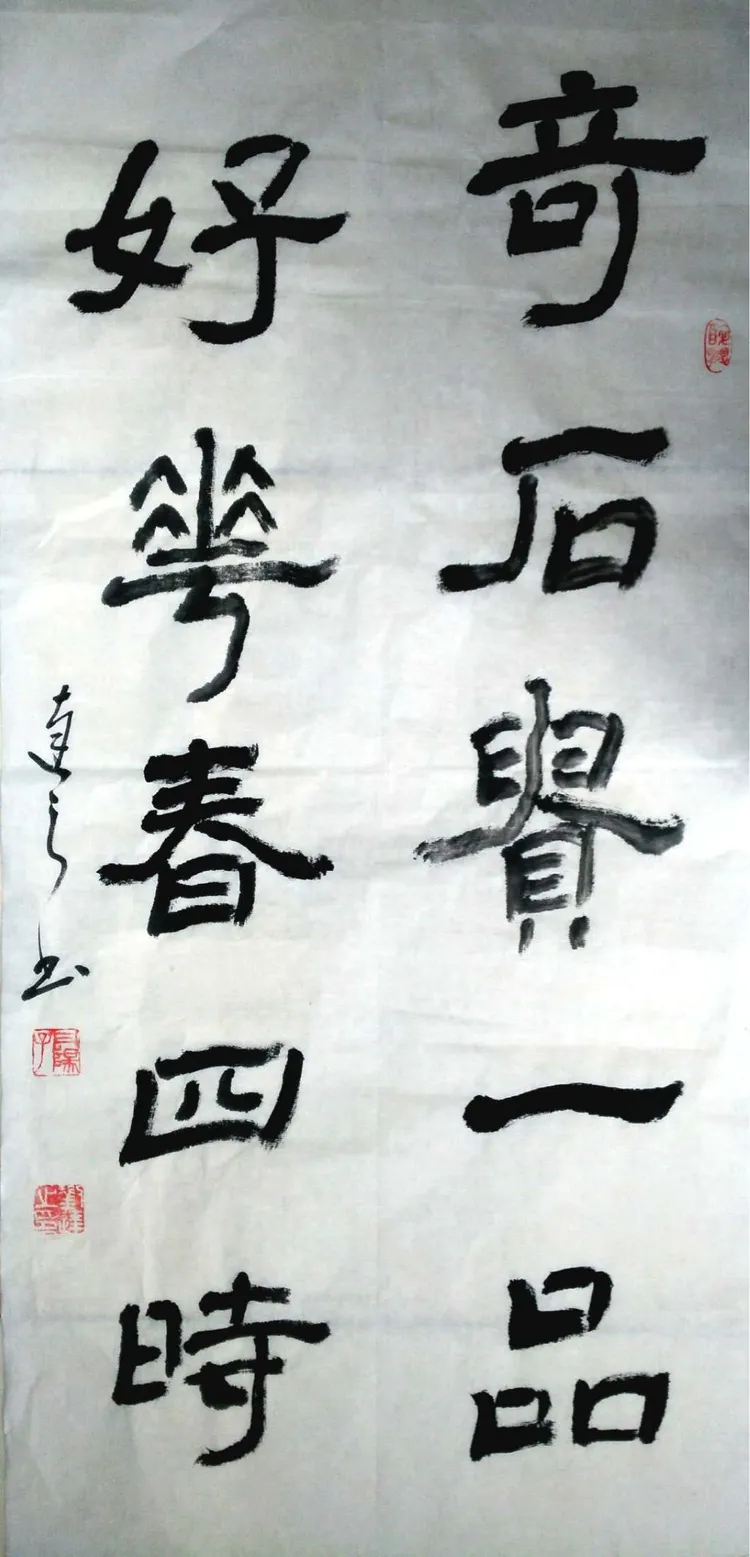 奇石貴一品
好華春四時
书